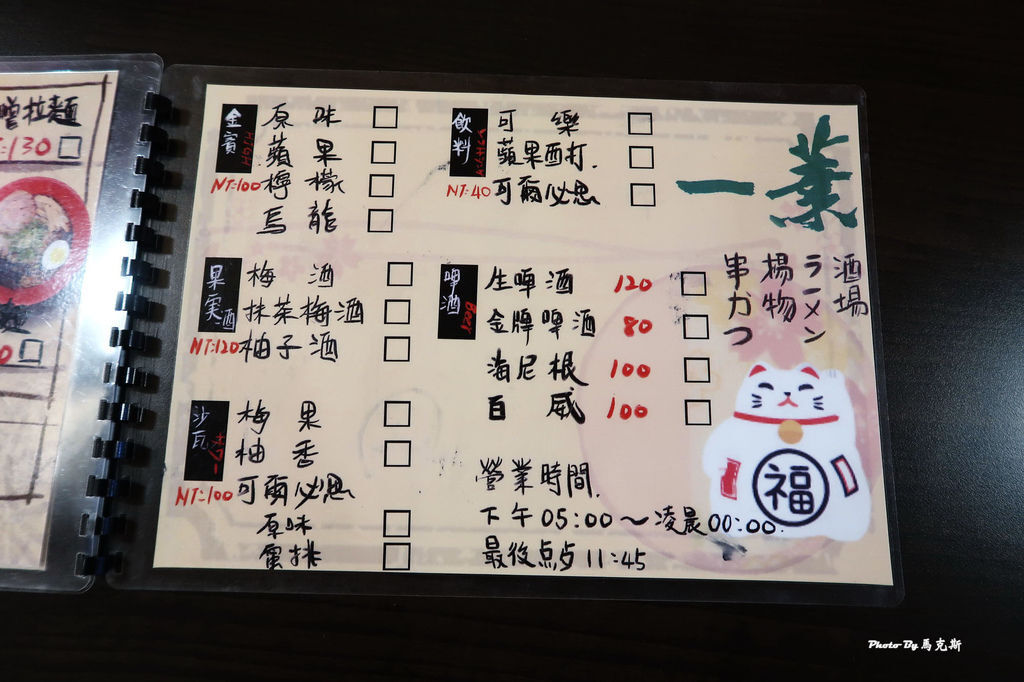 噌拉麵
130
金賓
HIGH
NT:100
原味
蘋果
檸檬
烏龍
果実酒
NT:120
梅酒
抹茶梅酒
柚子酒
沙瓦
サワー
NT:100
梅果
柚香
可爾必思
原味
蜜桃
飲料
NT:40
可樂
蘋果西打
可爾必思
啤酒
Beer
生啤酒 120
金牌啤酒 80
海尼根 100
百威 100
營業時間
下午05:00~凌晨00:00
最後点占11:45
一業
酒場
ラーメン
揚物
串カつ
福
Photo By 馬克斯